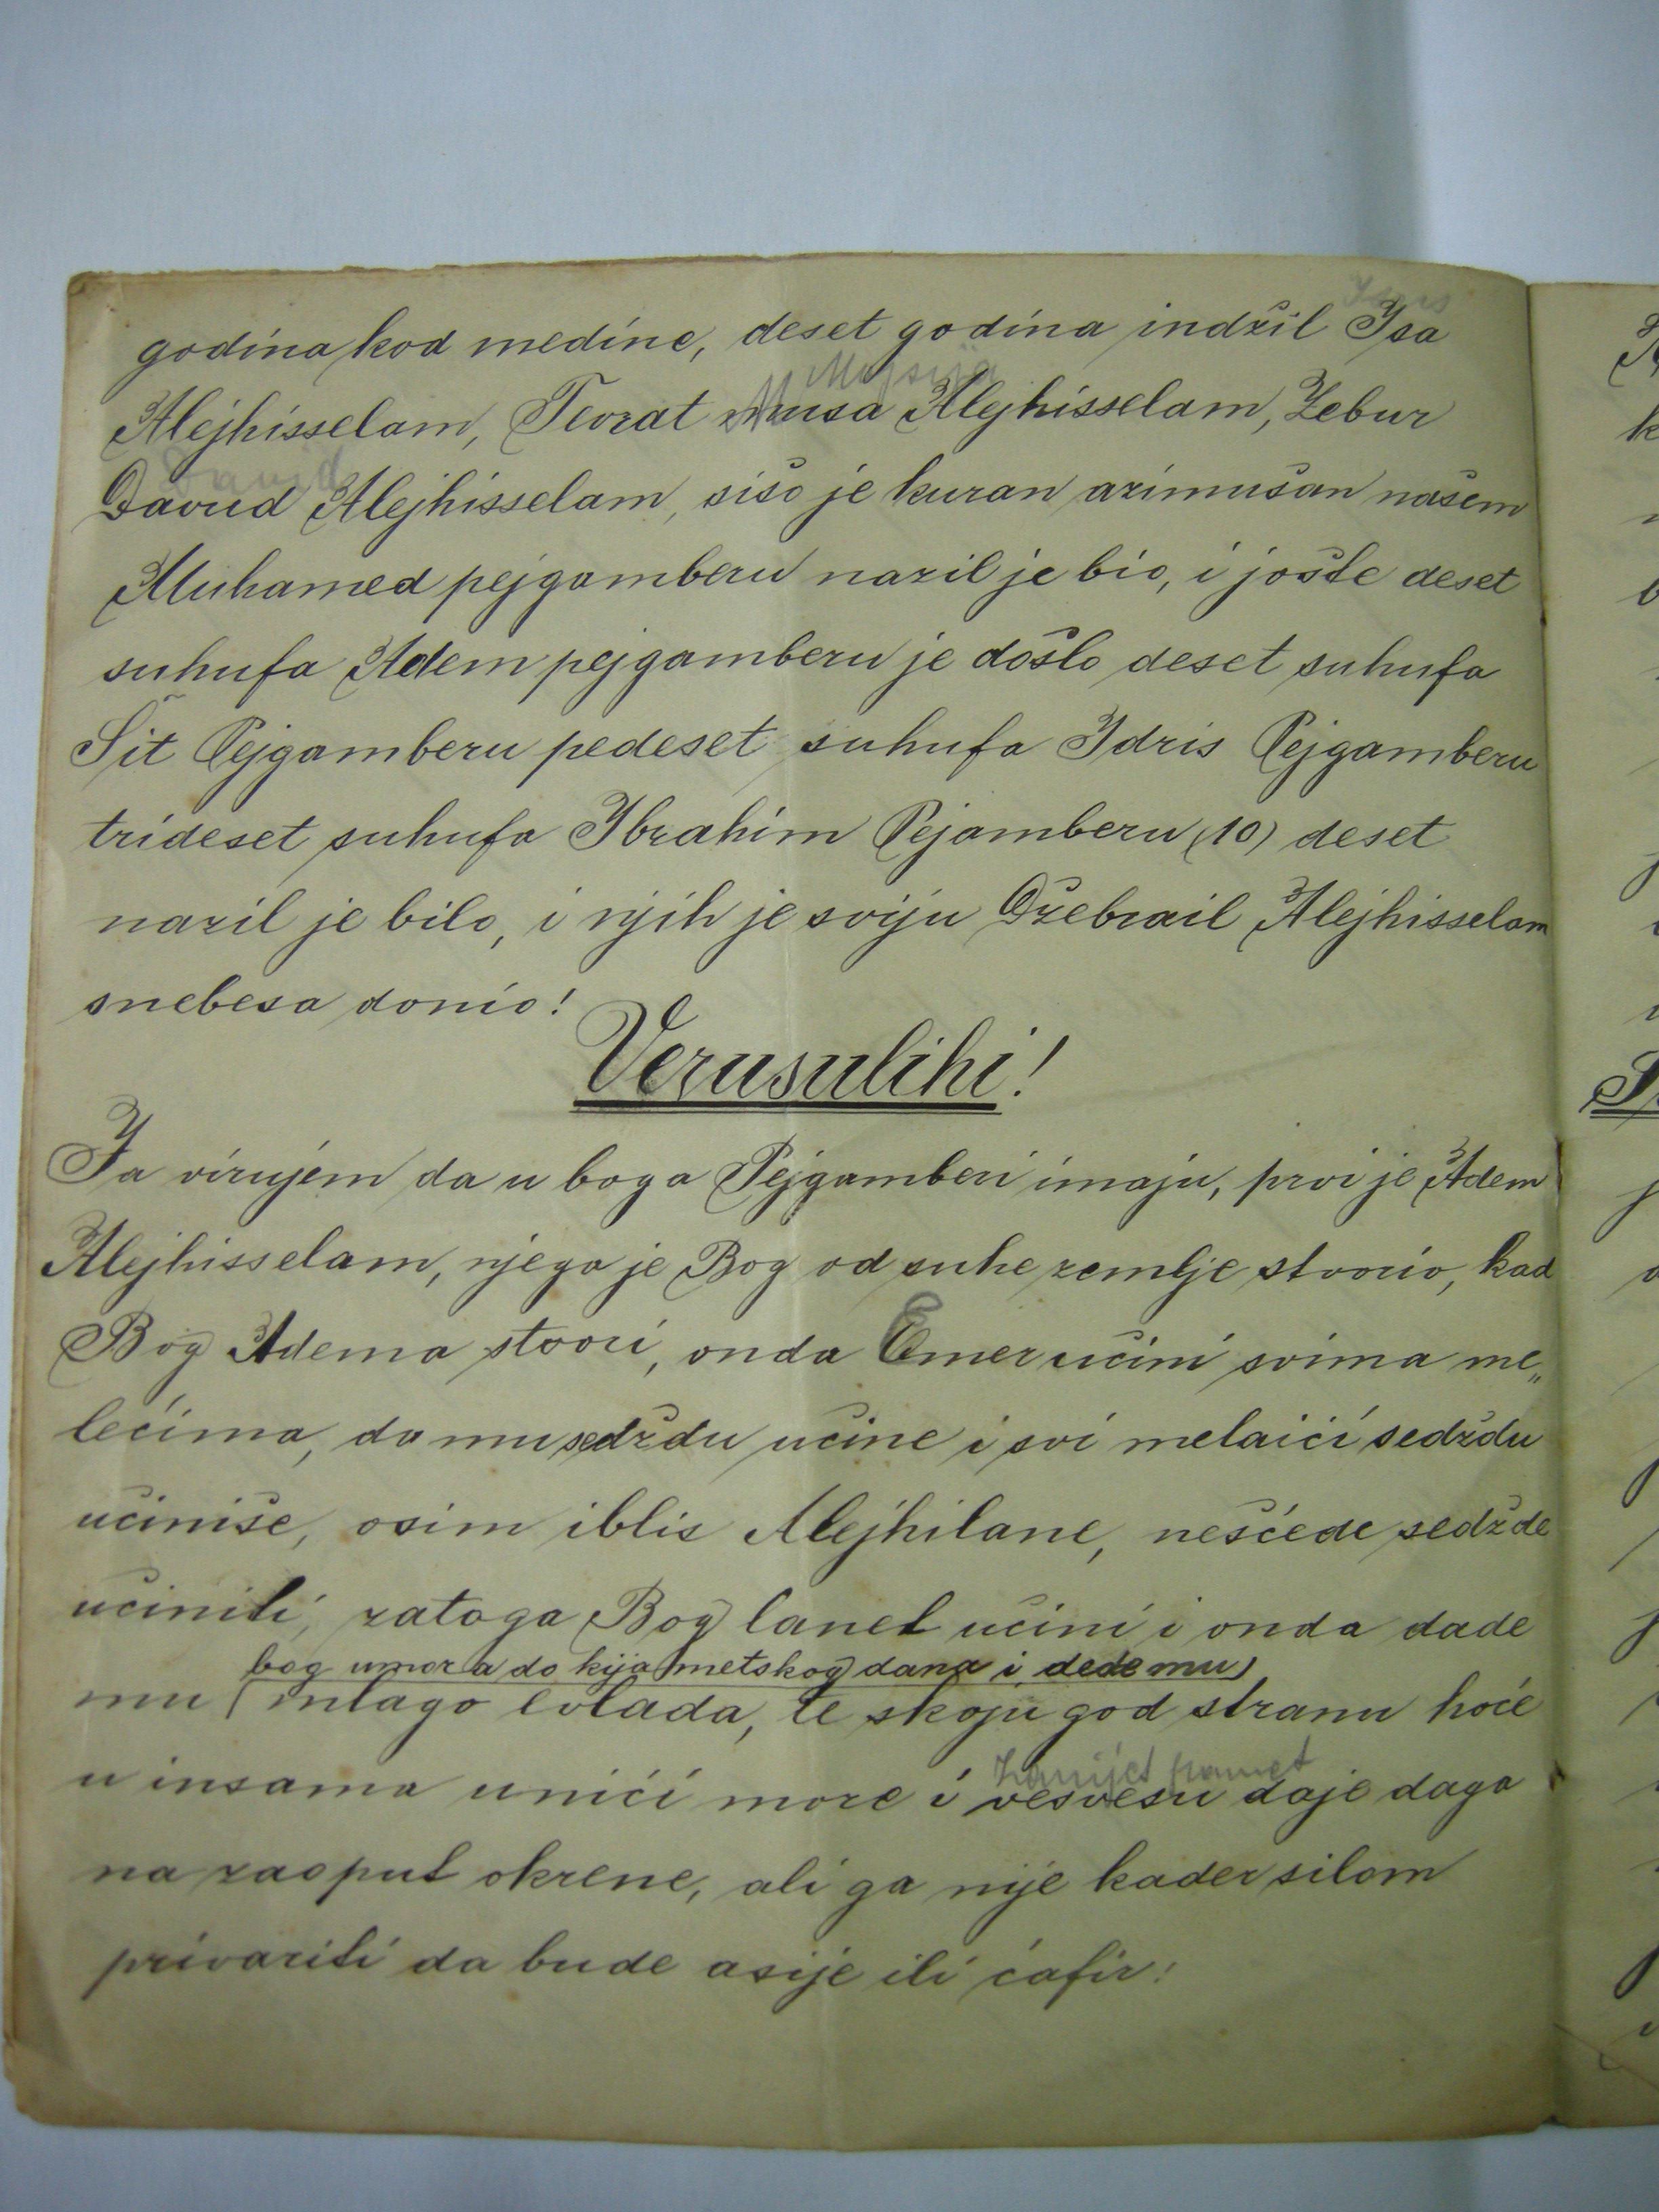 godina kod medine, deset godina indžil Isa
Alejhisselam, Tevrat Musa Alejhisselam, Zebur
David
Davud Alejhisselam, sišo je kuran azimušan našem
Muhamed pejgamberu nazil je bio, i jošte deset
suhufa Adem pejgamberu je došlo deset suhufa
Šit Pejgamberu pedeset suhufa Idris Pejgamberu
trideset suhufa Ibrahim Pejamberu (10) deset
nazil je bilo, i njih je sviju Džebrail Alejhisselam
snebesa donio!
Verusulihi!
Ja virujem da u boga Pejgamberi imaju, prvi je Adem
Alejhisselam, njega je Bog od suhe zemlje stvorio, kad
Bog Adema stvori, onda Emer učini svima me„
lećima, da mu sedždu učine i svi melaići sedždu
učiniše, osim iblis Alejhilane, nešćede sedžde
učiniti, zatoga Bog lanet učini i onda dade
bog umora do kijametskog dana i dede mu
mu mlago evlada, te skoju god stranu hoće
u insama unići more i vesvesu daje daga
na zaoput okrene, ali ga nije kader silom
privariti da bude asije ili ćafir!